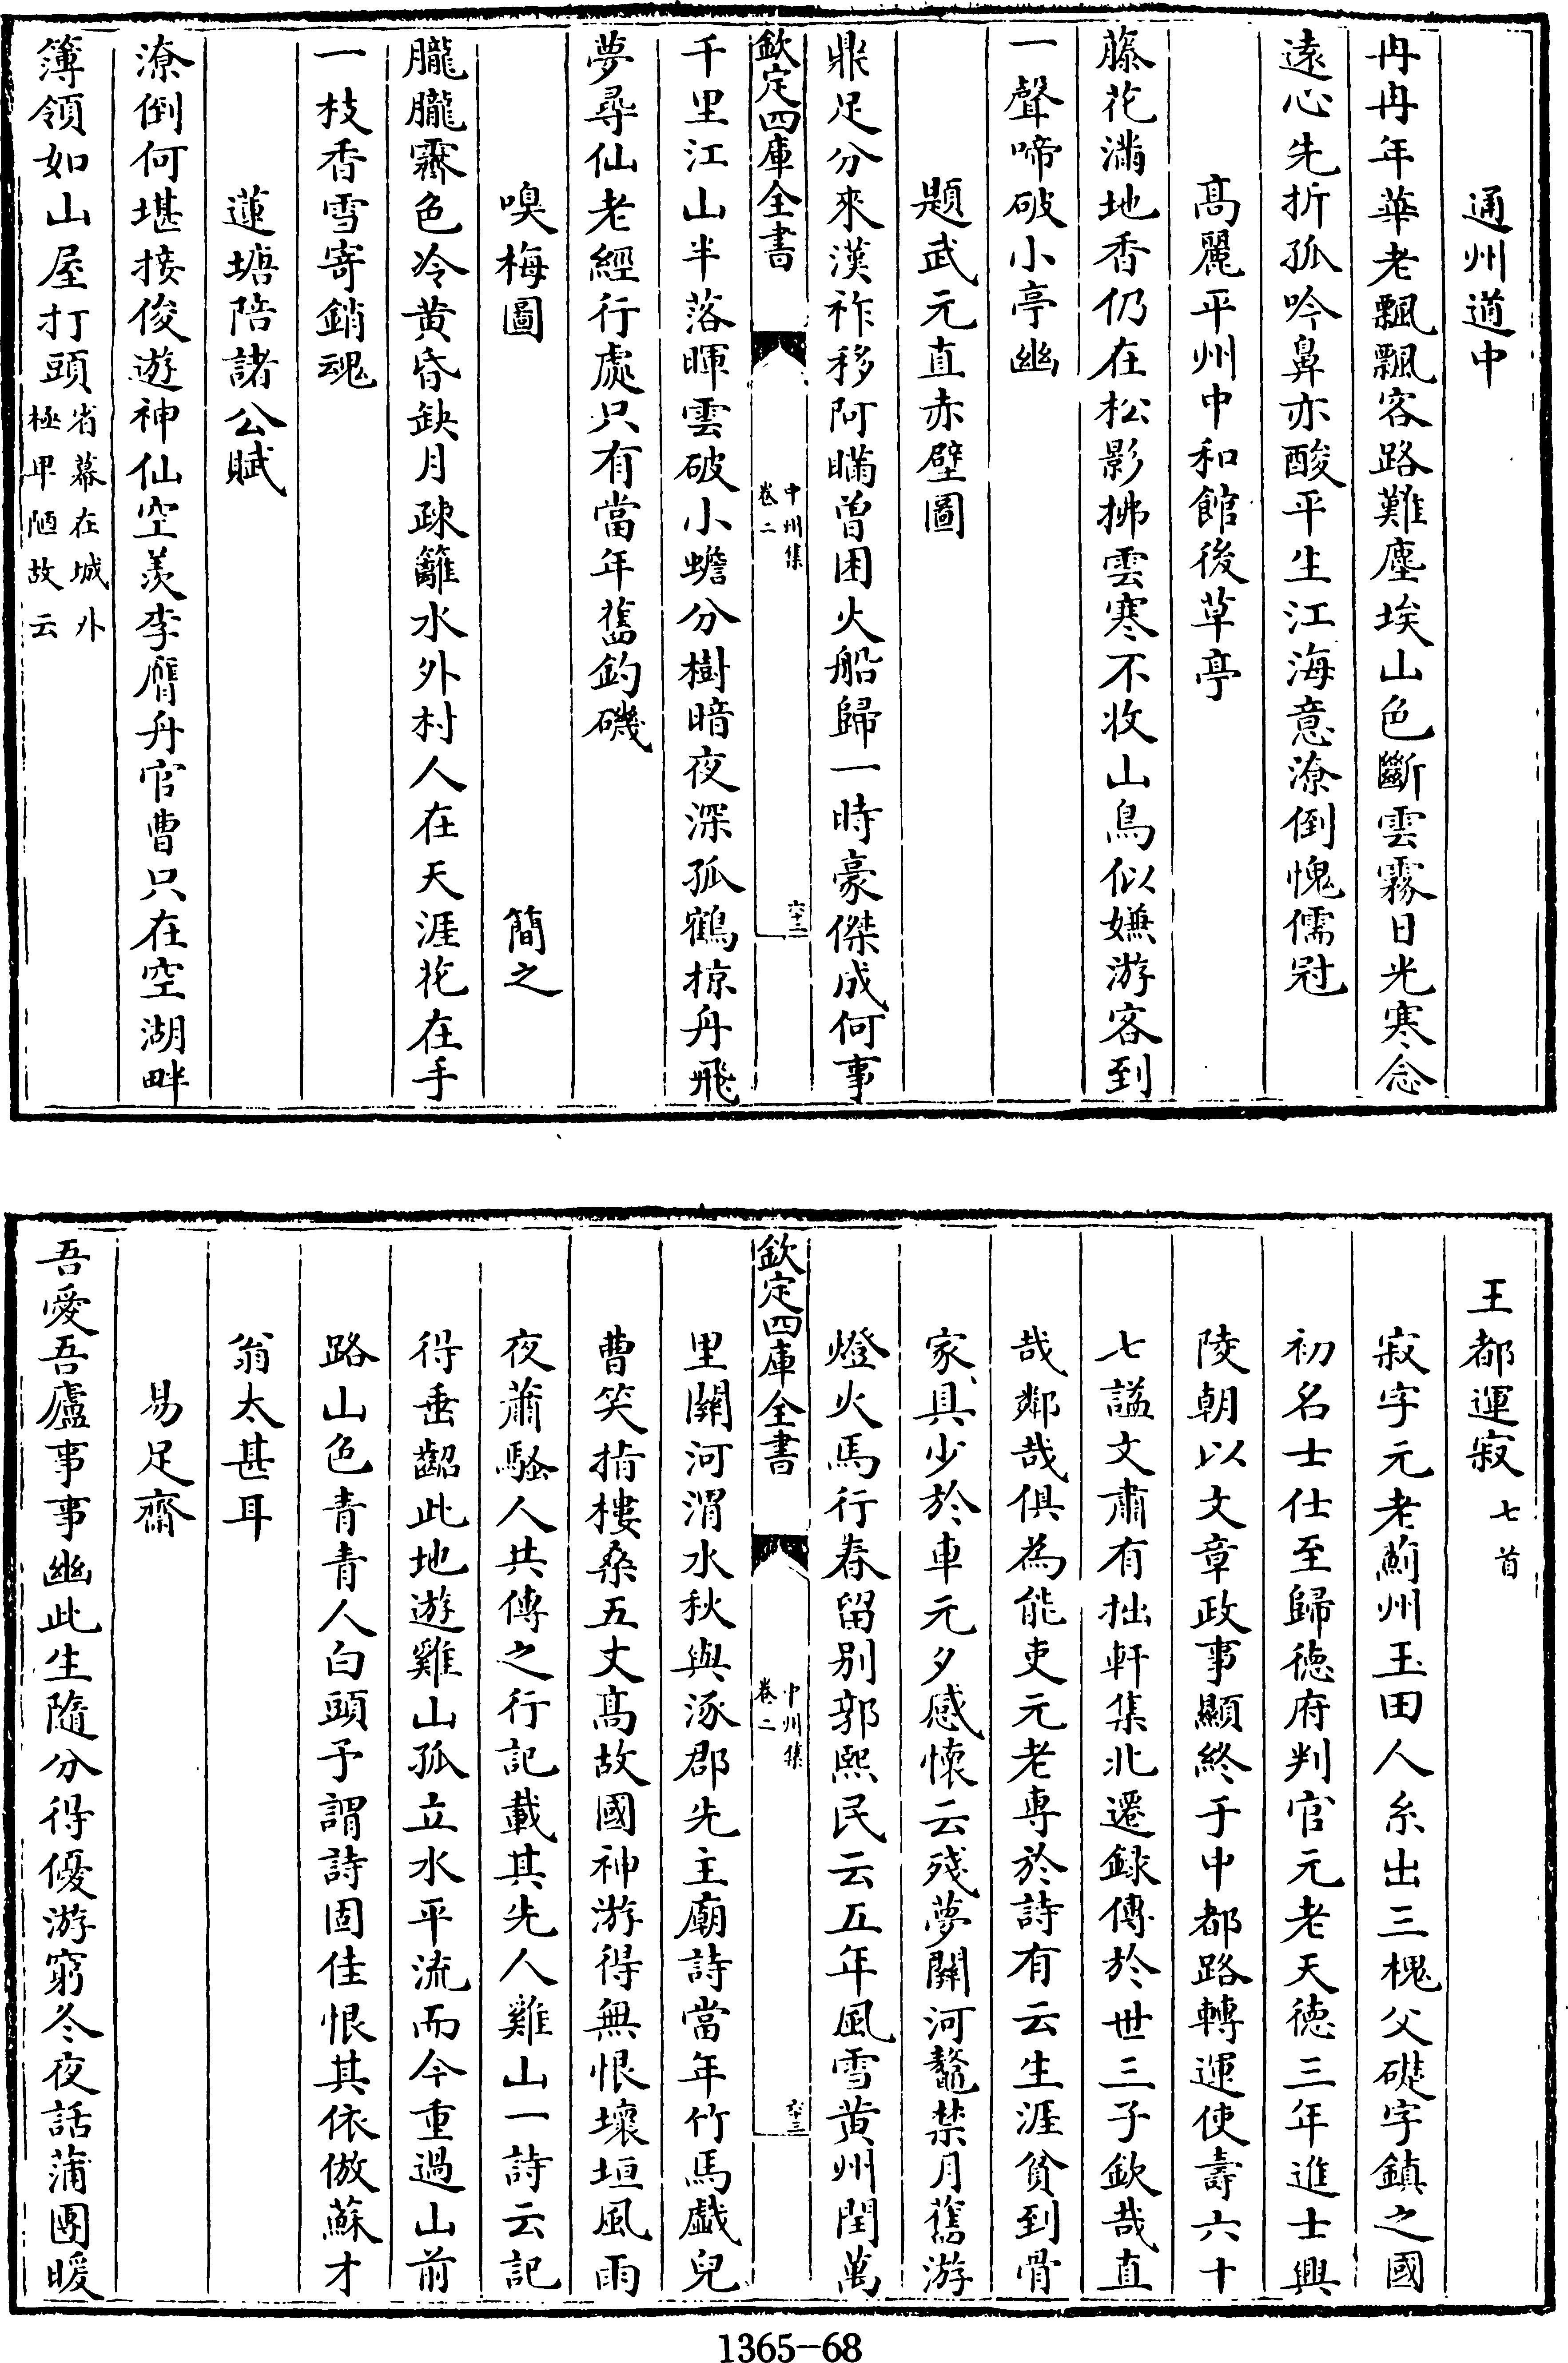 通州道中
冉冉年華老飄飄客路難塵埃山色斷雲霧日光寒念
遠心先折孤吟鼻亦酸平生江海意潦倒愧儒冠
高麗平州中和館後草亭
藤花滿地香仍在松影拂雲寒不收山鳥似嫌游客到
一聲啼破小亭幽
題武元直赤壁圖
鼎足分來漢祚移阿瞞曾困火船歸一時豪傑成何事
欽定四庫全書
中州集
卷二
六十二
千里江山半落暉雲破小蟾分樹暗夜深孤鶴掠舟飛
夢尋仙老經行處只有當年舊釣磯
嗅梅圖 簡之
朧朧霽色冷黃昏缺月疎籬水外村人在天涯花在手
一枝香雪寄銷魂
蓮塘陪諸公賦
潦倒何堪接俊遊神仙空羨李膺舟官曹只在空湖畔
簿領如山屋打頭省幕在城外
極卑陋故云
王都運寂七首
寂字元老薊州玉田人系出三槐父礎字鎮之國
初名士仕至歸德府判官元老天德三年進士興
陵朝以文章政事顯終于中都路轉運使壽六十
七謚文肅有拙軒集北遷録傳於世三子欽哉直
哉鄰哉俱為能吏元老專於詩有云生涯貧到骨
家具少於車元夕感懷云殘夢關河鼇禁月舊游
燈火馬行春留别郭熙民云五年風雪黃州閏萬
欽定四庫全書
中州集
卷二
六十三
里關河渭水秋與涿郡先主廟詩當年竹馬戲兒
曹笑指樓桑五丈高故國神游得無恨壞垣風雨
夜蕭騷人共傳之行記載其先人雞山一詩云記
得垂齠此地遊雞山孤立水平流而今重過山前
路山色青青人白頭予謂詩固佳恨其依倣蘇才
翁太甚耳
易足齋
吾愛吾廬事事幽此生隨分得優游窮冬夜話蒲團暖
1365-68